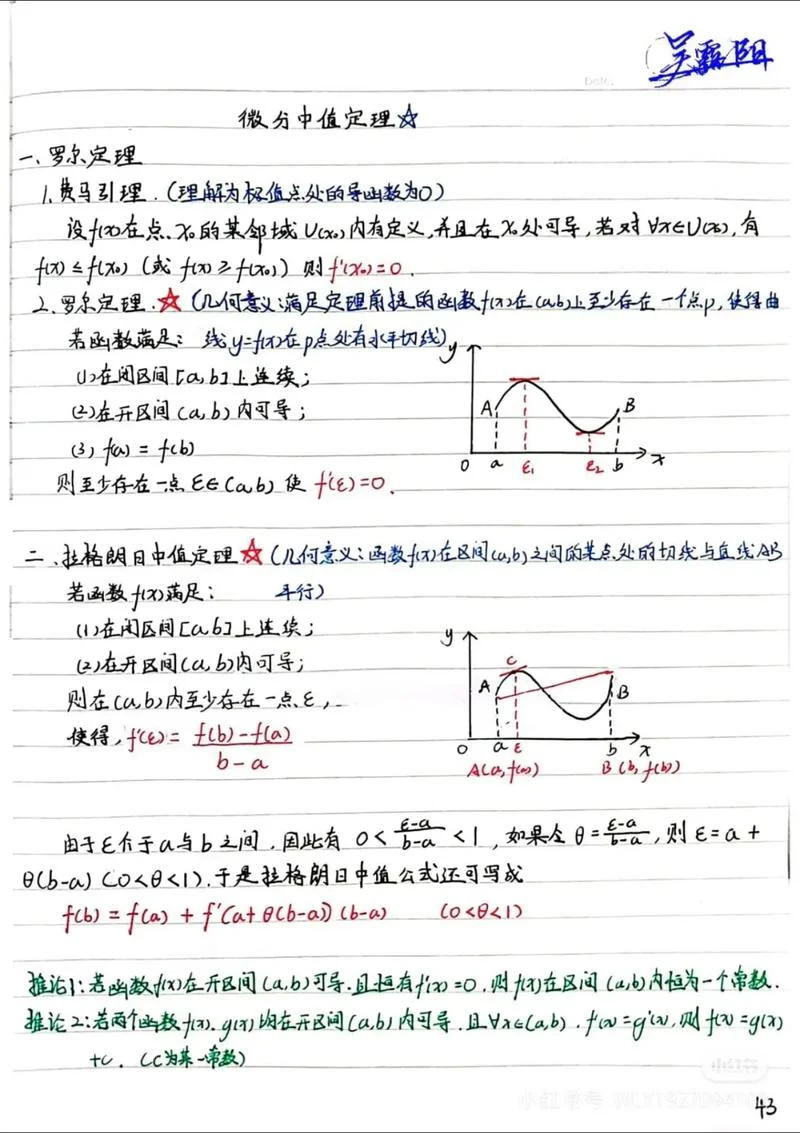 吴露阳
Date.
微分中值定理☆
一、罗尔定理
1.费马引理.(理解为极值点处的导函数为0)
设f(x)在点x₀的某邻域U(x₀)内有定义,并且在x₀处可导,若对∀x∈U(x₀),有
f(x)≤f(x₀) (或f(x)≥f(x₀)) 则f'(x₀)=0.
2.罗尔定理.☆(几何意义:满足定理前提的函数f(x)在(a,b)上至少存在一个点p,使得曲
若函数满足: 线y=f(x)在p点处有水平切线)
(1)在闭区间[a,b]上连续;
(2)在开区间(a,b)内可导;
(3) f(a) = f(b)
则至少存在一点ε∈(a,b) 使 f'(ε)=0.
y
A B
0 a ε₁ ε₂ b x
二、拉格朗日中值定理☆(几何意义:函数f(x)在区间(a,b)之间的某点处的切线与直线AB
若函数f(x)满足: 平行)
(1)在闭区间[a,b]上连续;
(2)在开区间(a,b)内可导;
则在(a,b)内至少存在一点ε,
使得, f'(ε) = (f(b)-f(a))/(b-a)
y
C
A B
0 a ε b x
A(a,f(a)) B(b,f(b))
由于ε介于a与b之间,因此有 0<(ε-a)/(b-a)<1,如果令θ=(ε-a)/(b-a),则ε=a+
θ(b-a) (0<θ<1).于是拉格朗日中值公式还可写成
f(b) = f(a) + f'(a+θ(b-a))(b-a) (0<θ<1)
推论1:若函数f(x)在开区间(a,b)可导.且恒有f'(x)=0,则f(x)在区间(a,b)内恒为一个常数.
推论2:若两个函数f(x).g(x)均在开区间(a,b)内可导.且∀x∈(a,b),f'(x)=g'(x),则f(x)=g(x)
+c. (C为某一常数)
小红书
43